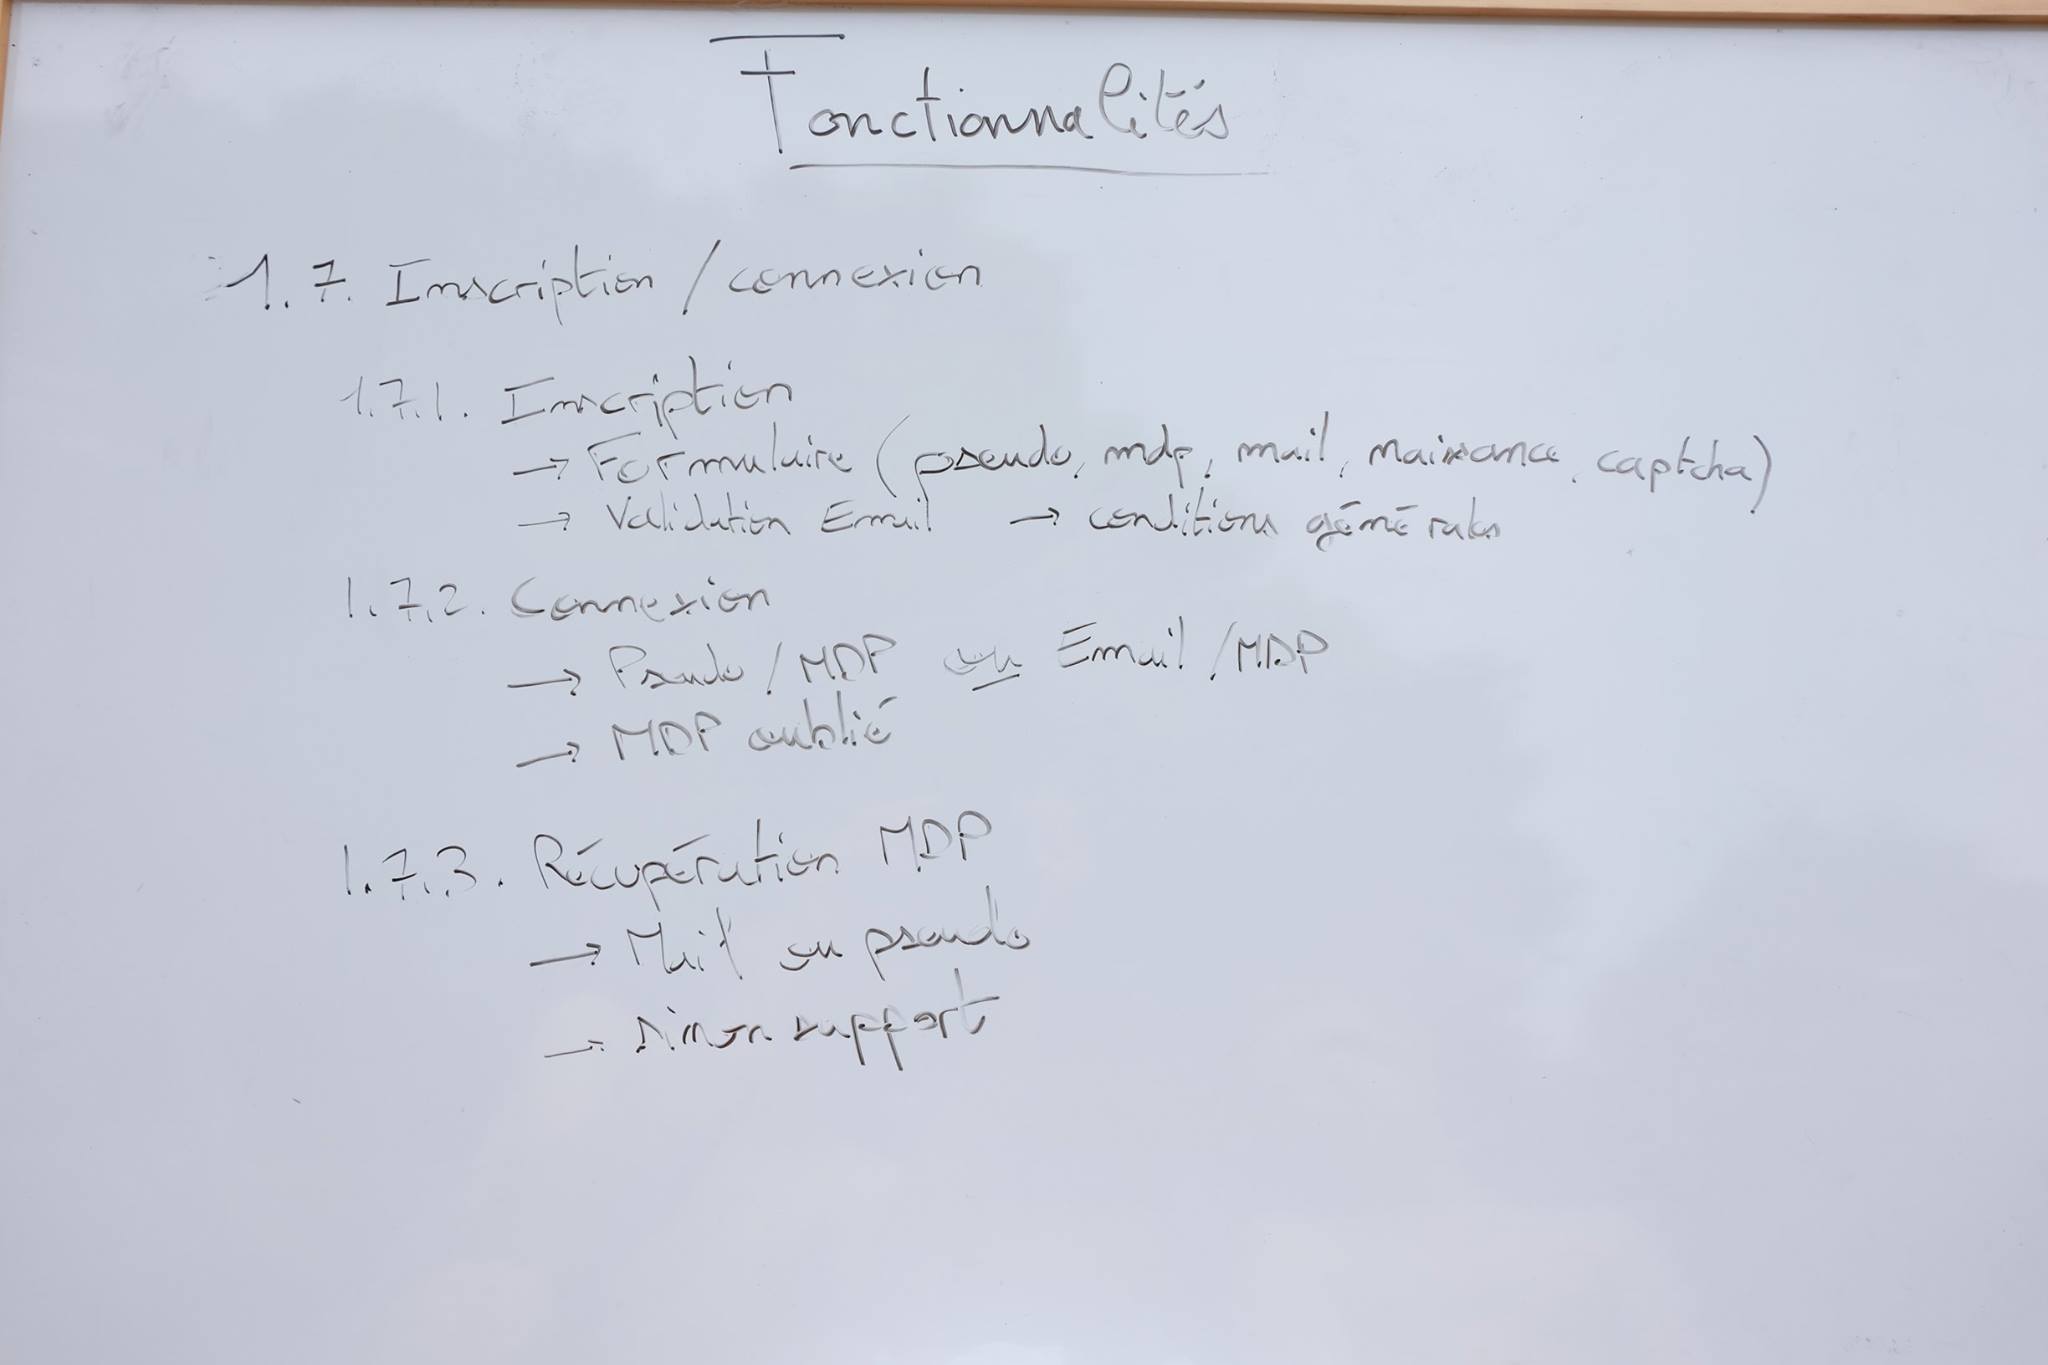 Fonctionnalités
1.7. Inscription / connexion
1.7.1. Inscription
→ Formulaire (pseudo, mdp, mail, naissance, captcha)
→ Validation Email → conditions générales
1.7.2. Connexion
→ Pseudo / MDP ou Email / MDP
→ MDP oublié
1.7.3. Récupération MDP
→ Mail ou pseudo
→ sinon support